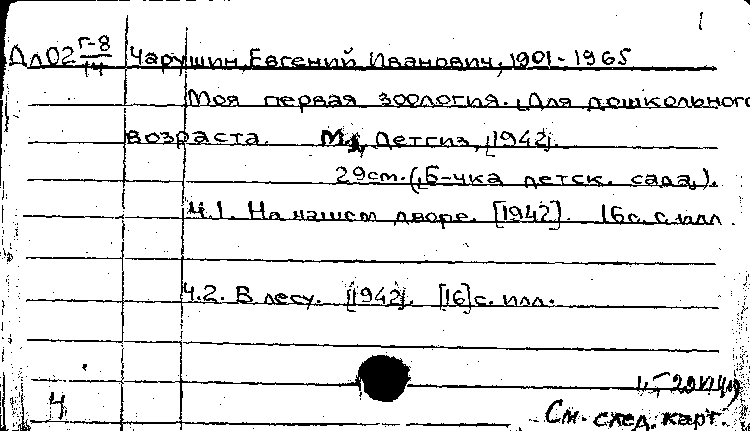 1
Дл02 Г-8/14 Чарушин, Евгений Иванович, 1901-1965
Моя первая зоология. [Для дошкольного
возраста. М., Детгиз, [1942].
29см. („Б-чка детск. сада„).
Ч.1. На нашем дворе. [1942]. 16с. с илл.
Ч.2. В лесу. [1942]. [16]с. илл.
Ч
См. след. карт.